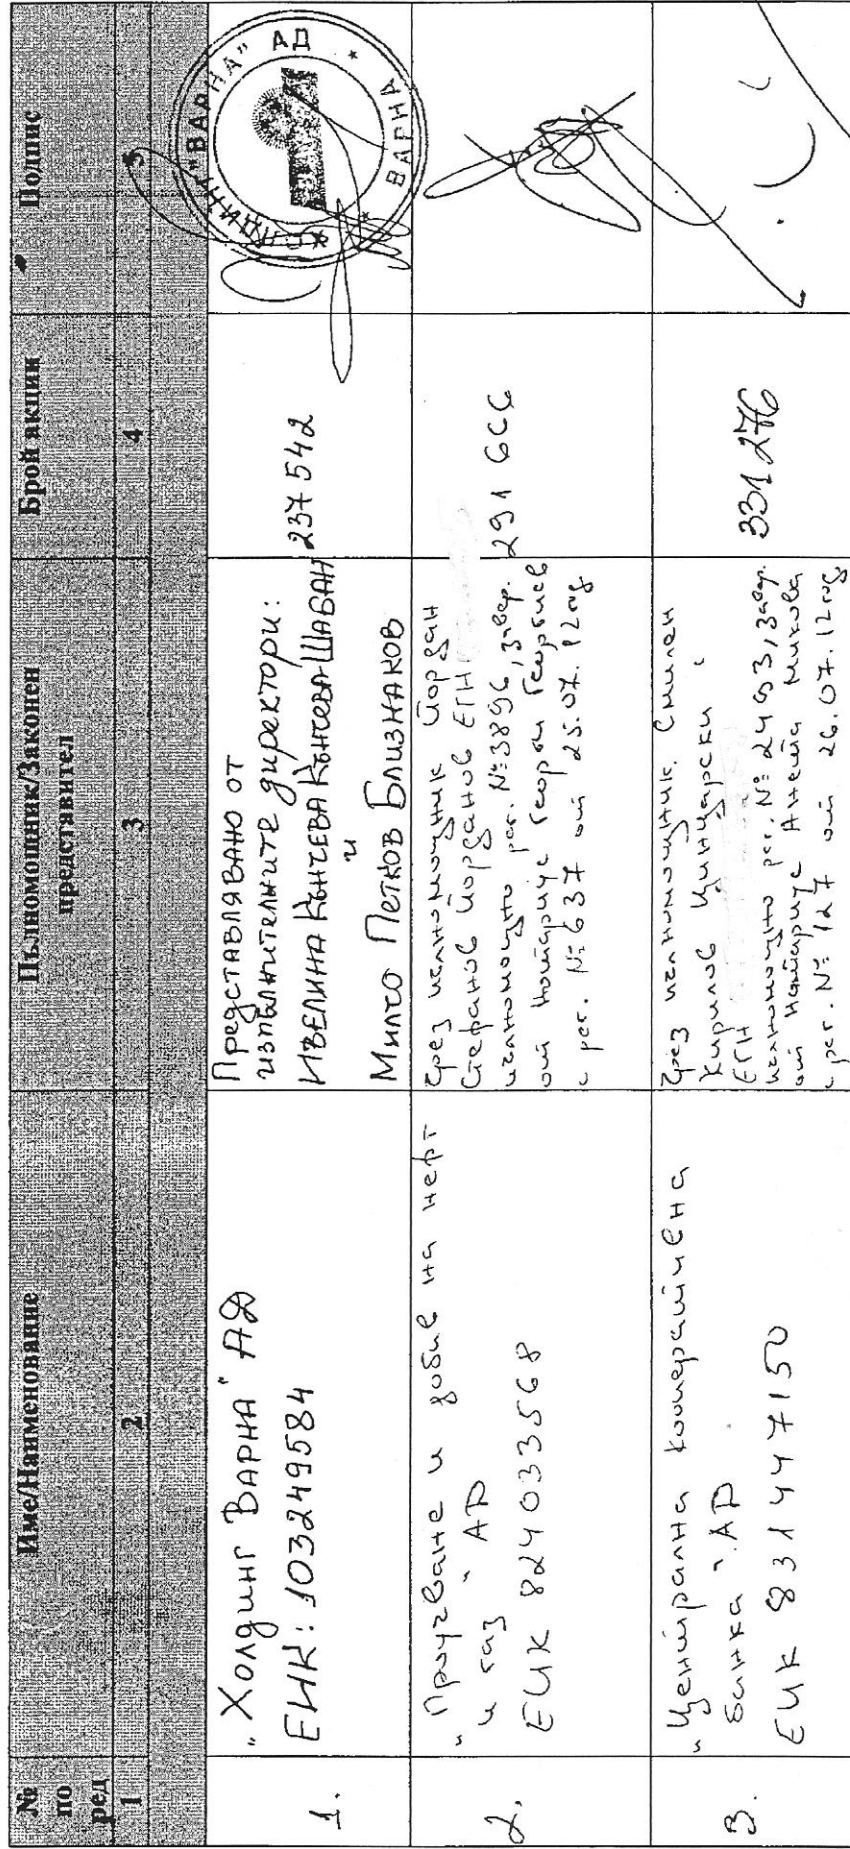 №
по
ред
Име/Наименование
Пълномощник/Законен
представител
Брой акции
Подпис
1
2
3
4
5
1.
"Холдинг Варна" АД
ЕИК: 103249584
Представлявано от
изпълнителните директори:
Ивелина Кънчева Кънчева-Шабан
и
Милчо Петков Близнаков
237 542
ХОЛДИНГ "ВАРНА" АД
ВАРНА
2.
"Проучване и добив на нефт
и газ" АД
ЕИК 824033568
Чрез пълномощник Йордан
Стефанов Йорданов ЕГН
пълномощно рег. №3896, завер.
от нотариус Георги Георгиев
с рег. № 637 от 25.07.12год
291 666
3.
"Централна кооперативна
банка" АД
ЕИК 831447150
Чрез пълномощник Смилен
Кирилов
ЕГН
пълномощно рег. № 2493, завер.
от нотариус Анета Микова
с рег. № 127 от 26.07.12год
331 276